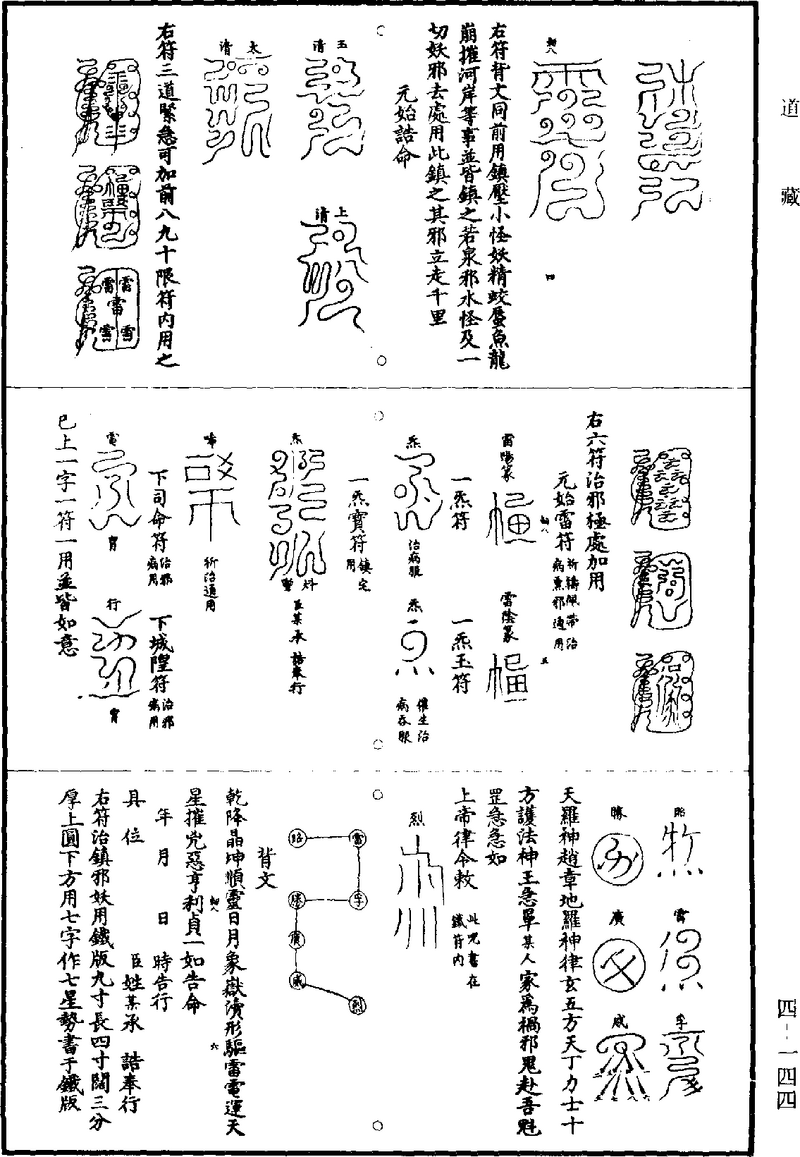 道藏
四-一四四
右符背文同前用鎮壓小怪妖精蛟蜃魚龍
崩摧河岸等事並皆鎮之若泉邪水怪及一
切妖邪去處用此鎮之其邪立走千里
元始誥命
玉清
上清
太清
右符三道緊急可加前八九十限符內用之
右六符治邪極處加用
元始雷符 祈禱佩帶治病熏邪通用
雷陽篆
雷陰篆
一炁符
一炁玉符
炁
治病服
炁
催生治病吞服
一炁寶符 鎮宅用
炁
臣某承 誥奉行
祈治通用
下司命符 治邪病用
下城隍符 治邪病用
電
行
已上一字一符一用並皆如意
雷
威
廣
天羅神趙章地羅神律玄五方天丁力士十
方護法神王急單某人家為禍邪鬼赴吾魁
罡急急如
上帝律令敕 此咒書在鐵符內
烈
背文
乾降晶坤順靈日月象嶽瀆形驅雷電運天
星摧兇惡亨利貞一如告命
年月 日 時告行
具位 臣姓某承 誥奉行
右符治鎮邪妖用鐵版九寸長四寸闊三分
厚上圓下方用七字作七星勢書于鐵版